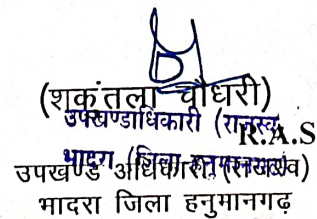 (शकुंतला चौधरी)
उपखण्डाधिकारी (राजस्व)
R.A.S
भादरा (जिला हनुमानगढ़)
उपखण्ड अधिकारी (राजस्व)
भादरा जिला हनुमानगढ़